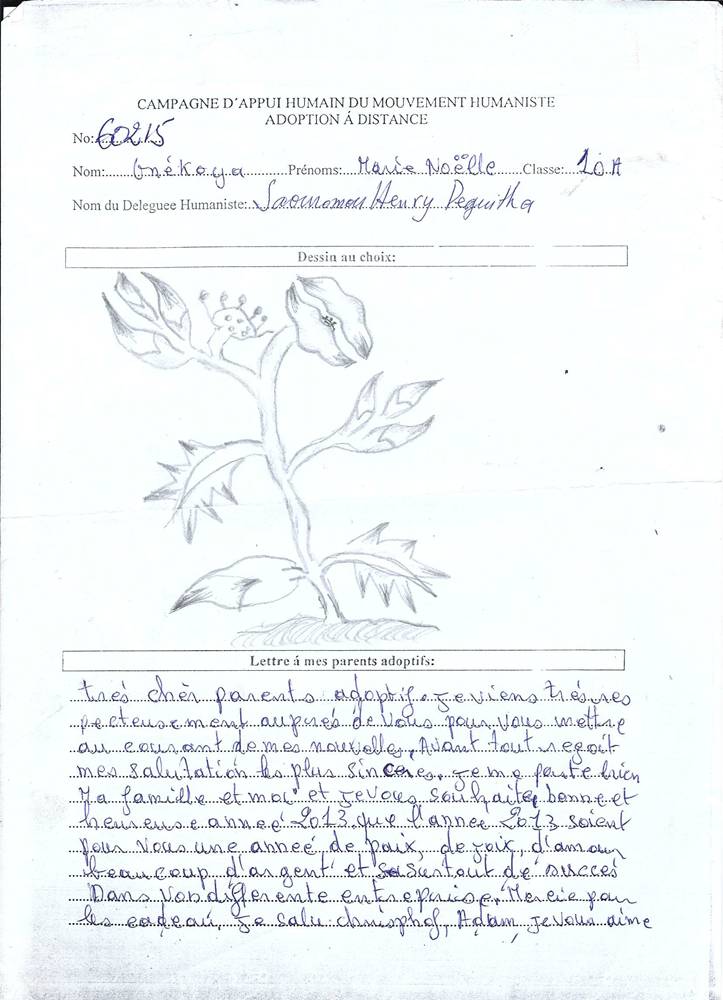 CAMPAGNE D´APPUI HUMAIN DU MOUVEMENT HUMANISTE
ADOPTION Á DISTANCE
No: 60215
Nom: Gnékoya Prénoms: Marie Noëlle Classe: 10A
Nom du Deleguee Humaniste: Henry
Dessin au choix:
Lettre á mes parents adoptifs:
trés chèr parents adoptif. je viens trés res
pecteusement auprés de vous pour vous mettre
au courant de mes nouvelles, Avant tout reçoit
mes salutation les plus sinceres. je me porte bien
Ma famille et moi et je vous souhaite bonne et
heureuse anneé 2013 que l'anneé 2013 soient
pour vous une anneé de paix, de joix, d'amour
beaucoup d'argent et surtout de succés
Dans vos differente entreprise. Mercie pour
les cadeau, je salu Adam, je vous aime